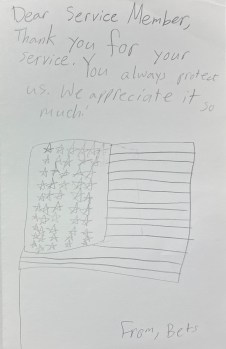 Dear Service Member,
Thank you for your
service. You always protect
us. We appreciate it so
much!
From, Bets